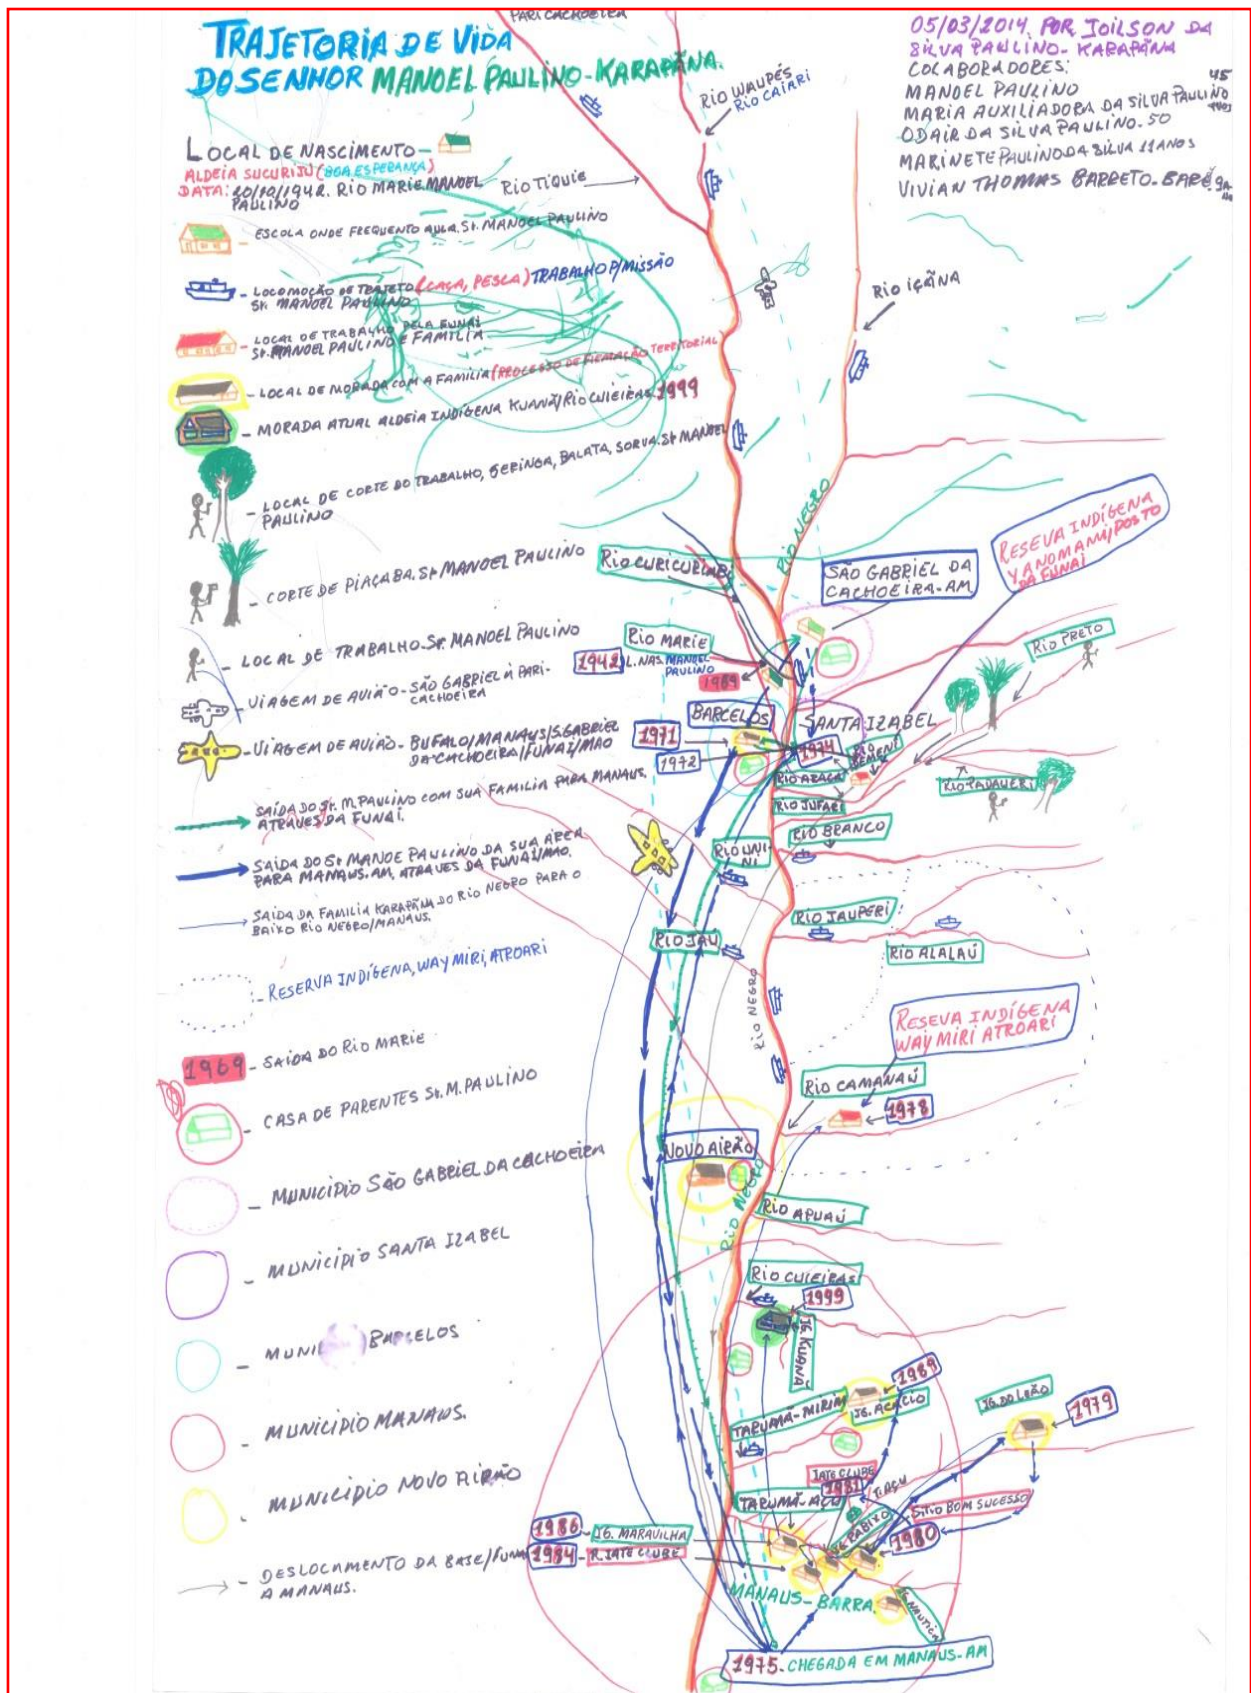 PARI CACHOEIRA
TRAJETORIA DE VIDA
DO SENHOR MANOEL PAULINO-KARAPÃNA.
05/03/2014. POR JOILSON DA
SILVA PAULINO - KARAPÃNA
COLABORADORES:
MANOEL PAULINO
MARIA AUXILIADORA DA SILVA PAULINO 45
ODAIR DA SILVA PAULINO. 50
MARINETE PAULINO DA SILVA 11 ANOS
VIVIAN THOMAS BARRETO-BARÉ
LOCAL DE NASCIMENTO-
ALDEIA SUCURIJU (BOA ESPERANÇA)
DATA: 20/10/1942. RIO MARIE. MANOEL
PAULINO
ESCOLA ONDE FREQUENTO AULA. Sr. MANOEL PAULINO
- LOCOMOÇÃO DE TRAJETO (CAÇA, PESCA) TRABALHO P/MISSÃO
Sr. MANOEL PAULINO
- LOCAL DE TRABALHO PELA FUNAI
Sr. MANOEL PAULINO E FAMILIA
- LOCAL DE MORADA COM A FAMILIA (PROCESSO DE FIRMAÇÃO TERRITORIAL
- MORADA ATUAL ALDEIA INDÍGENA KUANÃ/RIO CUIEIRAS. 1999
- LOCAL DE CORTE DO TRABALHO, SERINGA, BALATA, SORVA. Sr MANOEL
PAULINO
- CORTE DE PIAÇABA. Sr MANOEL PAULINO
- LOCAL DE TRABALHO. Sr. MANOEL PAULINO
- VIAGEM DE AVIÃO - SÃO GABRIEL À PARI-
CACHOEIRA
- VIAGEM DE AVIÃO - BUFALO/MANAUS/S.GABRIEL
DA CACHOEIRA/FUNAI/MAO
SAÍDA DO Sr. M. PAULINO COM SUA FAMILIA PARA MANAUS.
ATRAVES DA FUNAI.
SAÍDA DO Sr MANOE PAULINO DA SUA ÁREA
PARA MANAUS-AM, ATRAVES DA FUNAI/MAO.
SAÍDA DA FAMILIA KARAPÃNA DO RIO NEGRO PARA O
BAIXO RIO NEGRO/MANAUS.
- RESERVA INDÍGENA, WAY MIRI, ATROARI
1969 - SAÍDA DO RIO MARIE
- CASA DE PARENTES Sr. M. PAULINO
- MUNICIPIO SÃO GABRIEL DA CACHOEIRA
- MUNICIPIO SANTA IZABEL
- MUNI BARCELOS
- MUNICIPIO MANAUS.
- MUNICIPIO NOVO AIRÃO
- DESLOCAMENTO DA BASE/FUNAI
A MANAUS.
RIO WAUPÉS
RIO CAIARI
RIO TIQUIE
RIO IÇÃNA
RIO NEGRO
RIO CURICURIARI
SÃO GABRIEL DA
CACHOEIRA-AM
RESEVA INDÍGENA
YANOMAMI/POSTO
DA FUNAI
RIO MARIE
1942 L. NAS. MANOEL
PAULINO
1969
RIO PRETO
BARCELOS
SANTA IZABEL
1971
1972
1974
RIO DEMENI
RIO ARACÁ
RIO PADAUERI
RIO JUFARI
RIO BRANCO
RIO UNI-
NI
RIO JAUPERI
RIO JAU
RIO ALALAÚ
RIO NEGRO
RESEVA INDÍGENA
WAY MIRI ATROARI
RIO CAMANAÚ
1978
NOVO AIRÃO
RIO NEGRO
RIO APUAÚ
RIO CUIEIRAS
1999
IG. KUANÃ
1989
TARUMÃ-MIRIM
IG. ACÁCIO
IG. DO LEÃO
1979
IATE CLUBE
1981
T. AÇU
TARUMÃ-AÇU
SITIO BOM SUCESSO
1980
1986 - IG. MARAVILHA
1984 - R. IATE CLUBE
MANAUS-BARRA
IG. NAUTICA
1975 - CHEGADA EM MANAUS-AM